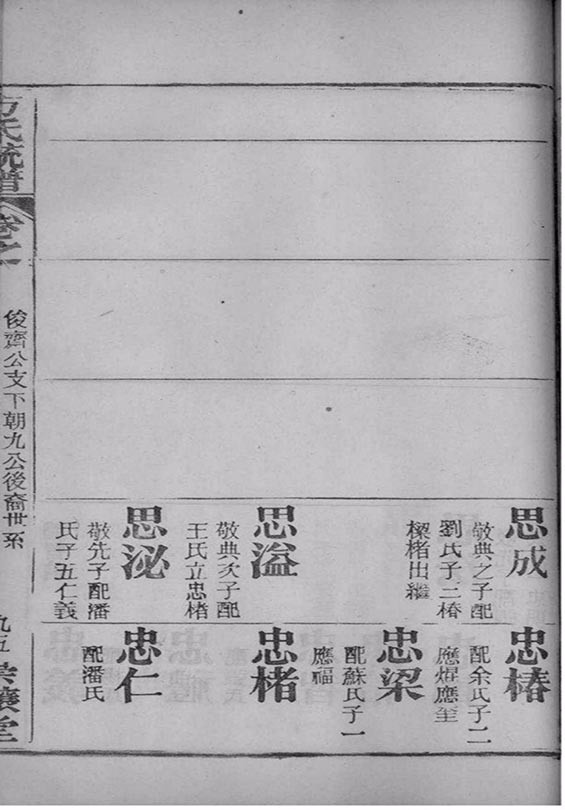 思成
敬典之子配
劉氏子三椿
樑楮出繼
思溢
敬典次子配
王氏立忠楮
思泌
敬先子配潘
氏子五仁義
忠椿
配余氏子二
應焜應至
忠梁
配蘇氏子一
應福
忠楮
忠仁
配潘氏
方氏統譜
卷之一
俊齊公支下朝九公後裔世系
九五
堂